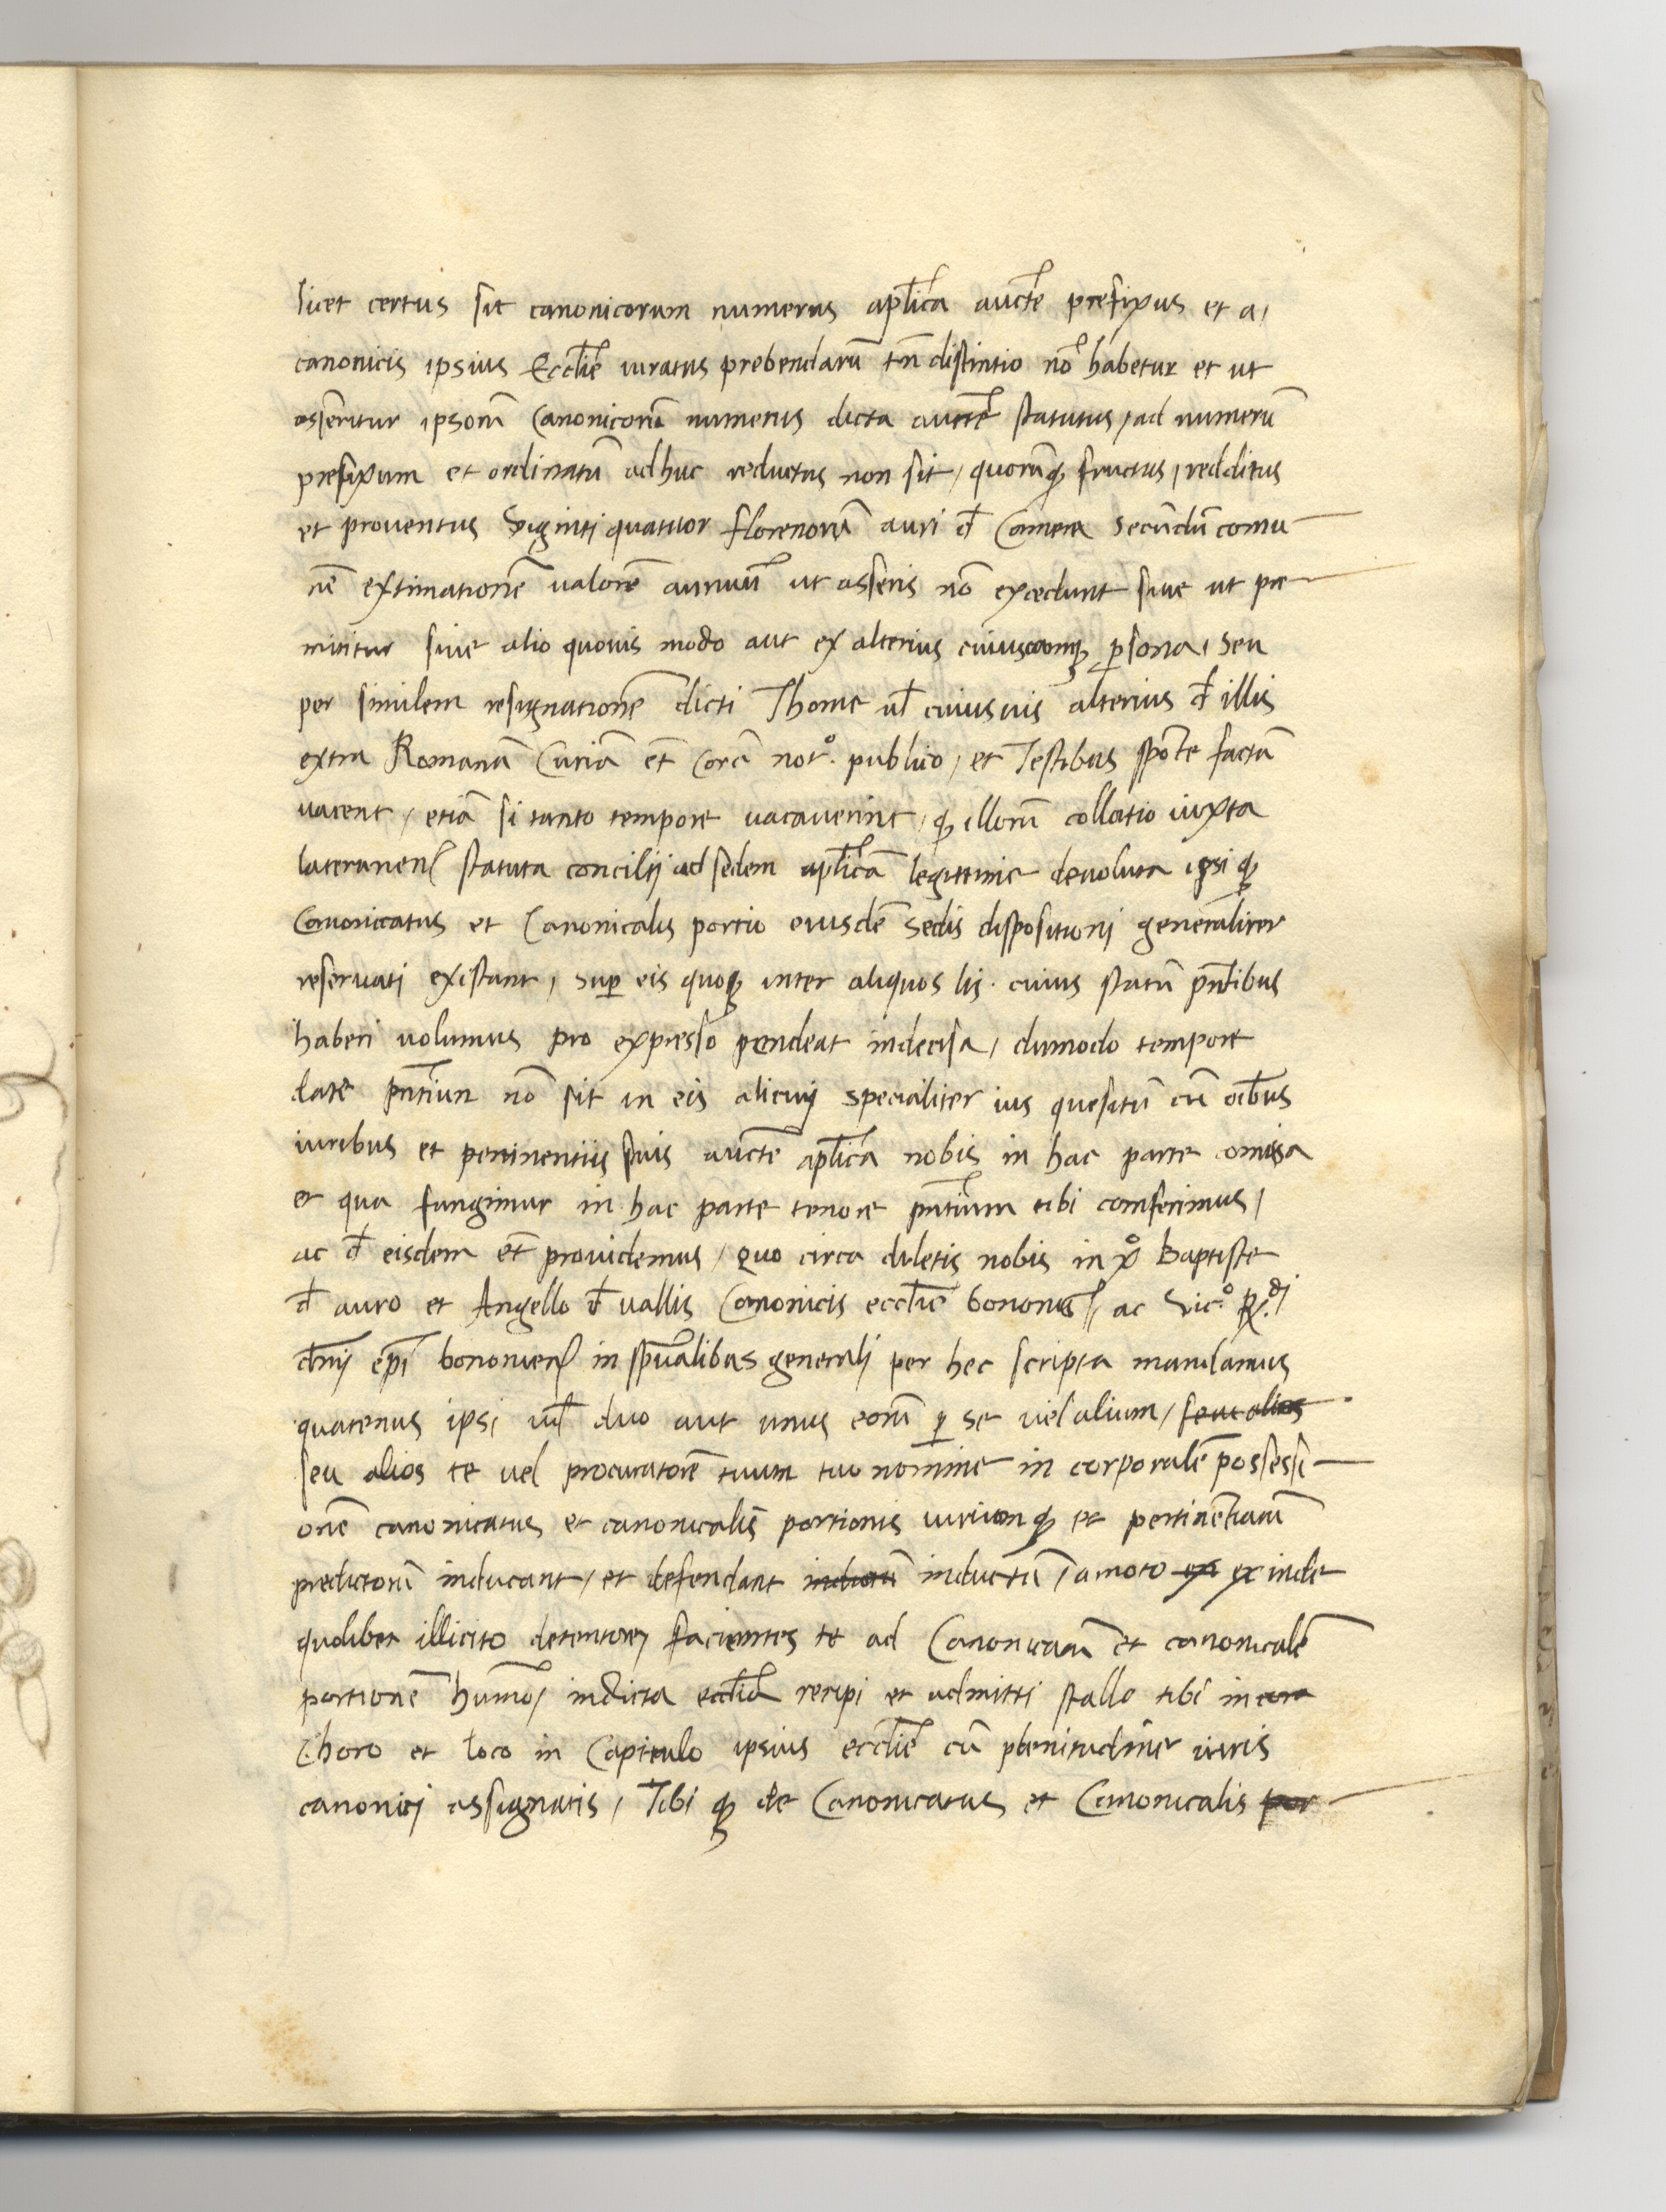 licet certus sit canonicorum numerus aplica aucte prefixus et a,
canonicis ipsius Ecclie iuratus prebendarū tn̄ distintio nō habetur et ut
asseritur ipsorū Canonicorū numerus dicta aucte statutus, ad numerū
prefixum et ordinatū adhuc reductus non sit, quorūq fructus, redditus
et proventus viginti quatuor florenorū auri d̄ Camera secundū comu
nē extimationē valorē annuū ut asseris nō excedunt sive ut pre
mititur sive alio quovis modo aut ex alterius cuiuscumq psona, seu
per similem resignationē dicti Thome ul̄ cuiusvis alterius d̄ illis
extra Romanā Curiā et̄ Corā not.º publico, et Testibus spōte factā
vacent, etiā si tanto tempore vacaverint, q illorū collatio iuxta
lateranen̄ statuta concilij ad sedem aplicā legittime devoluta ipsi q
Canonicatus et Canonicalis portio eiusdē Sedis dispositionj generaliter
reservati existant, Sup eis quoq inter aliquos lis. cuius statū pn̄tibus
haberi volumus pro expresso pendeat indecisa, dumodo tempore
date pn̄tium nō sit in eis alicuj specialiter ius quesitū cū oībus
iuribus et pertinentiis suis aucte aplica nobis in hac parte comissa
et qua fungimur in hac parte tenore pn̄tium tibi comferimus,
ac d̄ eisdem et̄ providemus, Quo circa diletis nobis in xº Baptiste
d̄ auro et Angello d̄ vallis Canonicis ecclie bononīēs, ac Vic.º R.di
dn̄ij epī bononien̄ in spūalibus generalj per hec scripta mandamus
quatenus ipsi ul̄ duo aut unus eorū p se vel alium, seu alios
seu alios te vel procuratorē tuum tuo nomine in corporalē possessi
onē canonicatus et canonicalis portionis iuriumq et pertinētiarū
predictorū inducant, et defendant inductū inductū, amoto ex ex inde
quolibet illicito detentore, facientes te ad Canonicatū et canonicalē
portionē humōi indicta ecclia recipi et admitti stallo tibi in cor
Choro et loco in Capitulo ipsius ecclie cū plenitudine iuris
canonicj assignatis, Tibi q de Canonicatus et Canonicalis por